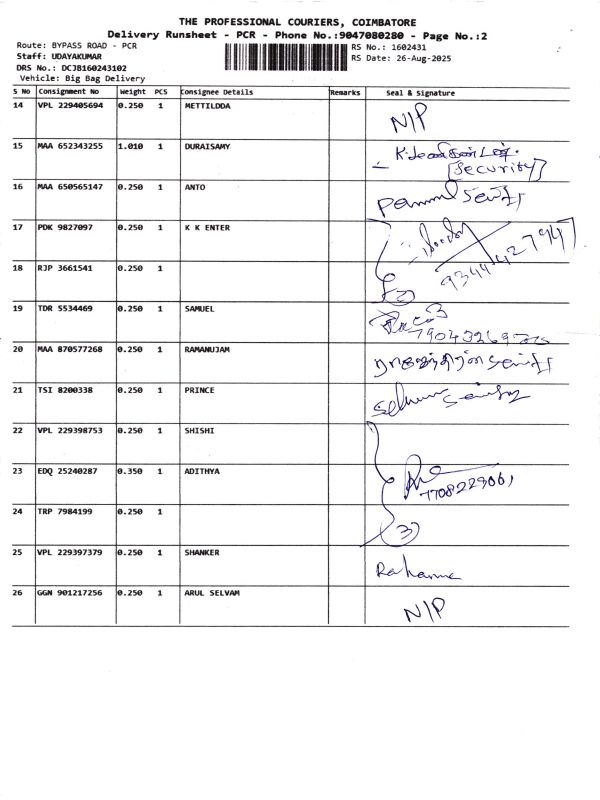 THE PROFESSIONAL COURIERS, COIMBATORE
Delivery Runsheet - PCR - Phone No.:9047080280 - Page No.:2
Route: BYPASS ROAD - PCR
RS No.: 1602431
Staff: UDAYAKUMAR
RS Date: 26-Aug-2025
DRS No.: DCJB160243102
Vehicle: Big Bag Delivery
S No Consignment No Weight PCS Consignee Details Remarks Seal & Signature
14 VPL 229405694 0.250 1 METTILDDA N/P
15 MAA 652343255 1.010 1 DURAISAMY
[Security]
16 MAA 650565147 0.250 1 ANTO
17 PDK 9827097 0.250 1 K K ENTER
18 RJP 3661541 0.250 1 (2)
19 TDR 5534469 0.250 1 SAMUEL
20 MAA 870577268 0.250 1 RAMANUJAM
21 TSI 8200338 0.250 1 PRINCE
22 VPL 229398753 0.250 1 SHISHI
23 EDQ 25240287 0.350 1 ADITHYA
24 TRP 7984199 0.250 1 (3)
25 VPL 229397379 0.250 1 SHANKER
26 GGN 901217256 0.250 1 ARUL SELVAM N/P